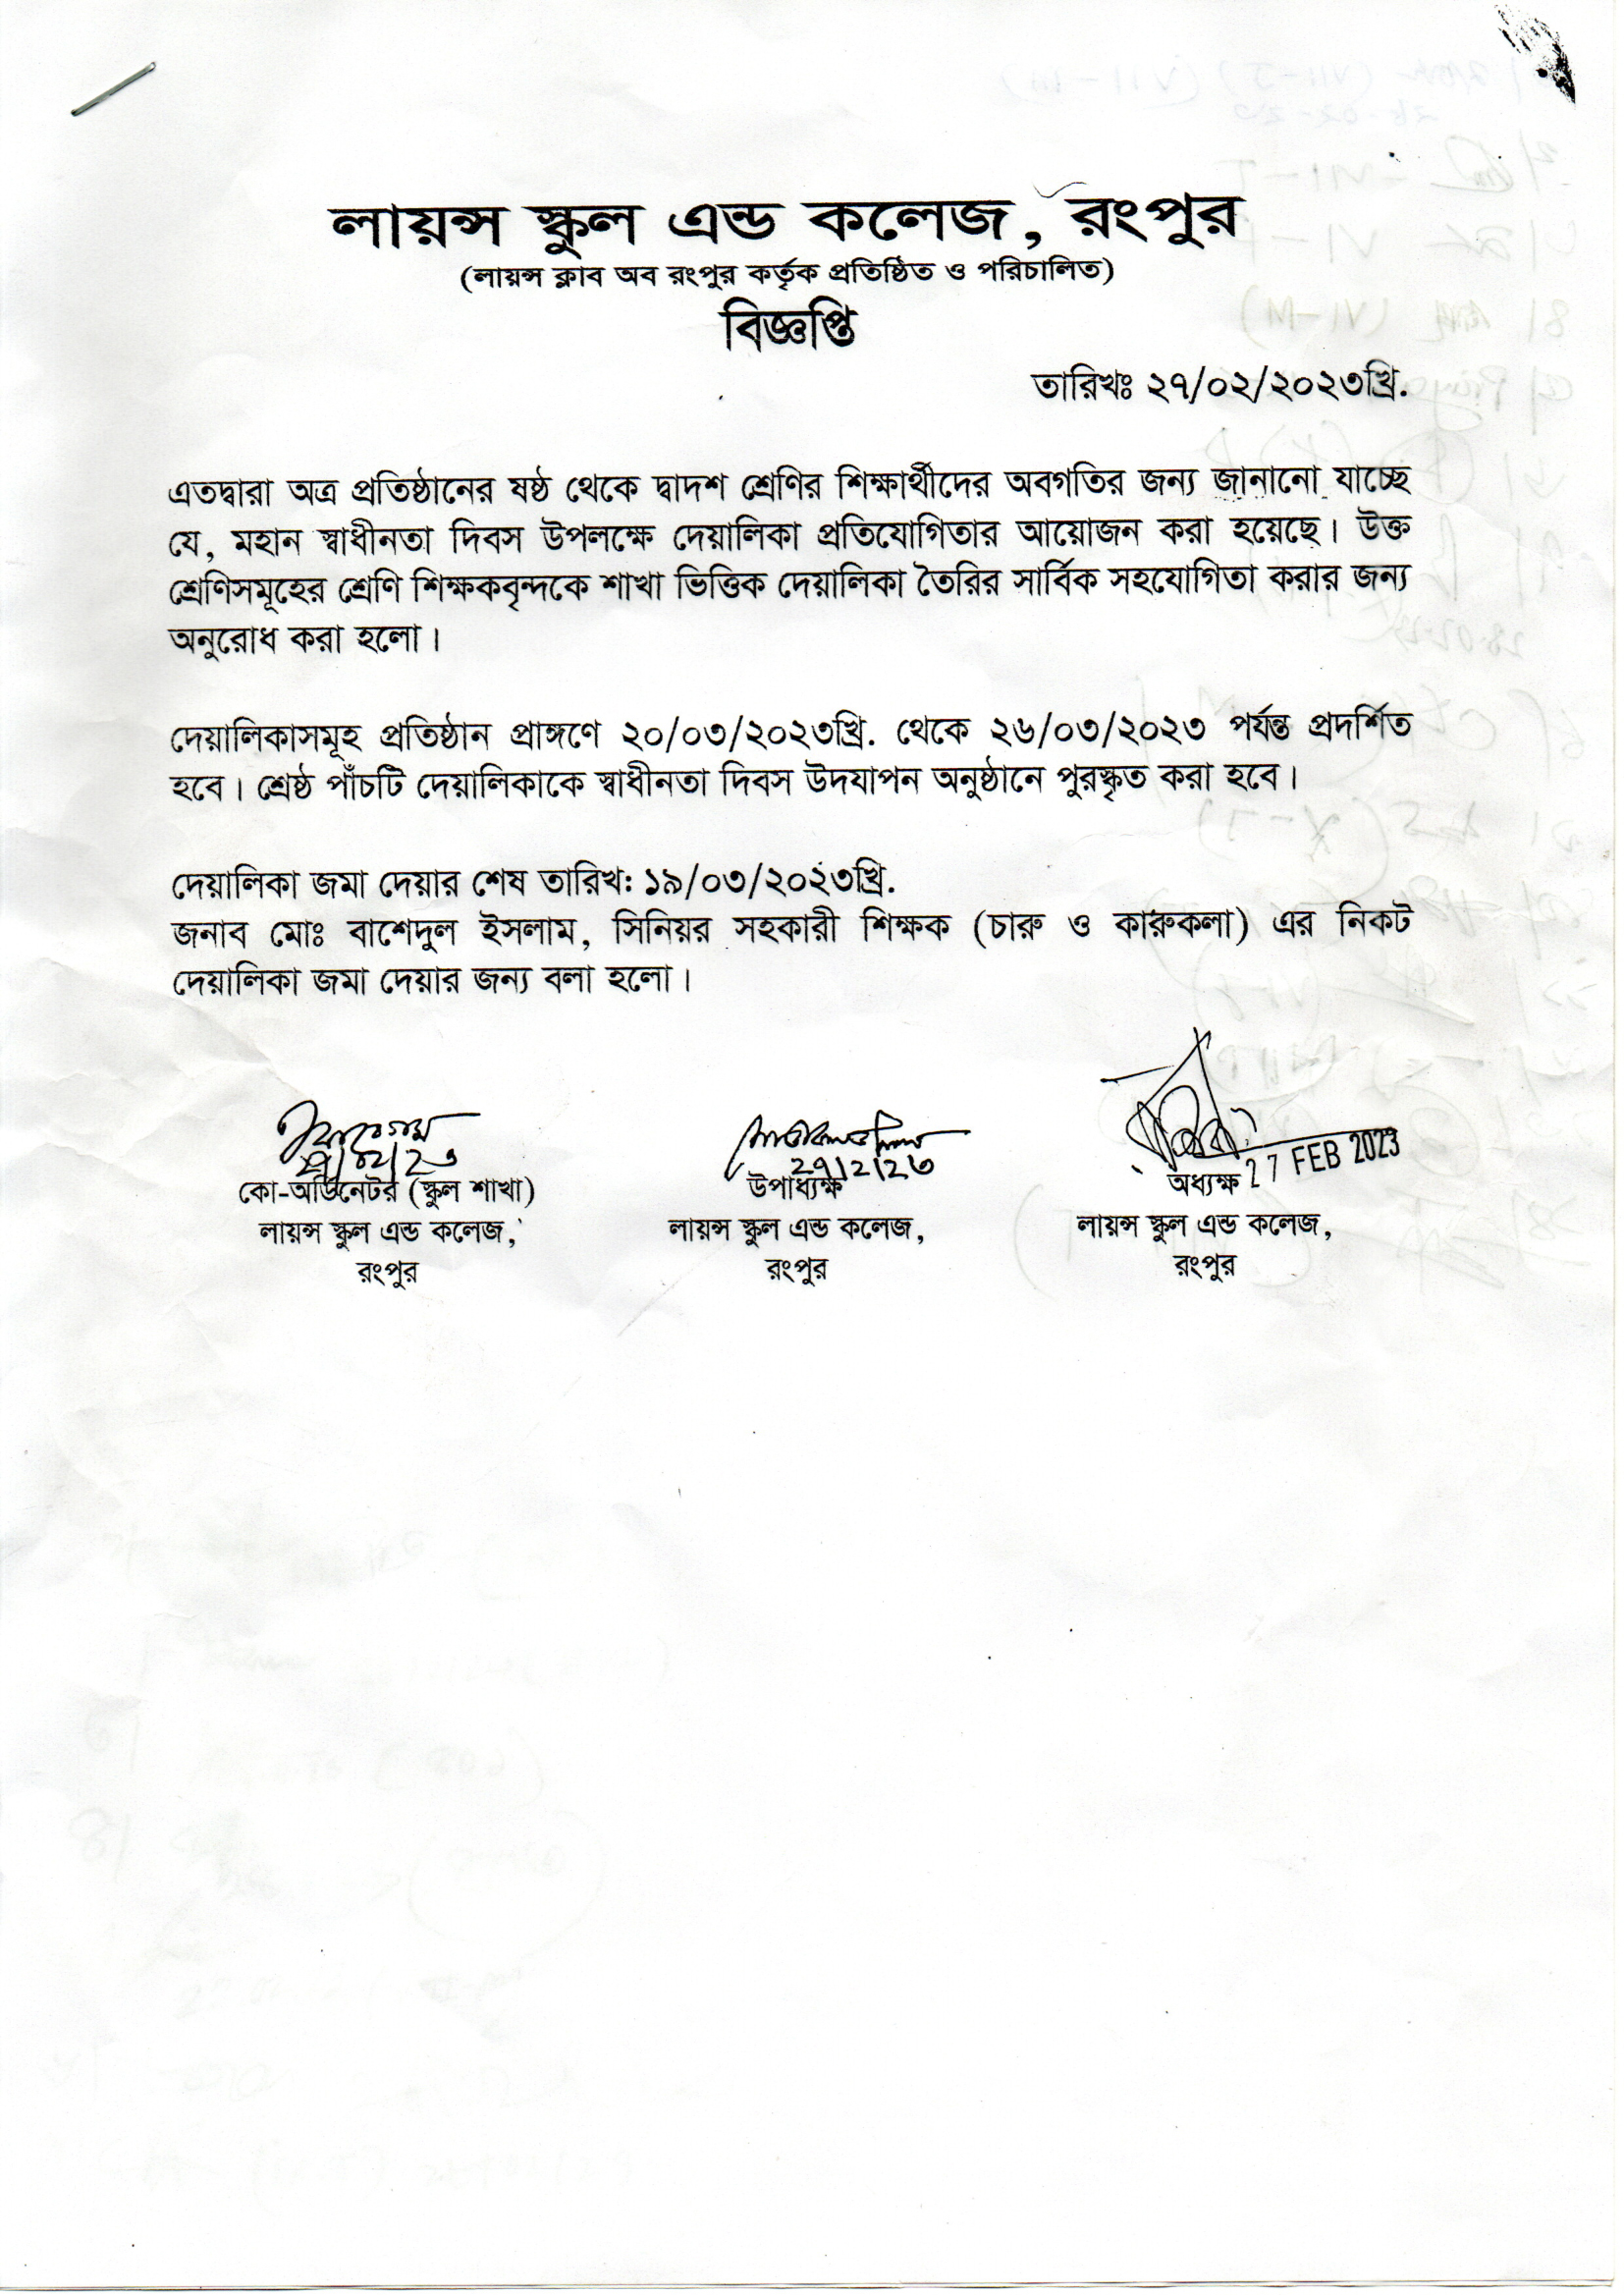 লায়ন্স স্কুল এন্ড কলেজ, রংপুর
(লায়ন্স ক্লাব অব রংপুর কর্তৃক প্রতিষ্ঠিত ও পরিচালিত)
বিজ্ঞপ্তি
তারিখঃ ২৭/০২/২০২৩খ্রি.
এতদ্বারা অত্র প্রতিষ্ঠানের ষষ্ঠ থেকে দ্বাদশ শ্রেণির শিক্ষার্থীদের অবগতির জন্য জানানো যাচ্ছে
যে, মহান স্বাধীনতা দিবস উপলক্ষে দেয়ালিকা প্রতিযোগিতার আয়োজন করা হয়েছে। উক্ত
শ্রেণিসমূহের শ্রেণি শিক্ষকবৃন্দকে শাখা ভিত্তিক দেয়ালিকা তৈরির সার্বিক সহযোগিতা করার জন্য
অনুরোধ করা হলো।
দেয়ালিকাসমূহ প্রতিষ্ঠান প্রাঙ্গণে ২০/০৩/২০২৩খ্রি. থেকে ২৬/০৩/২০২৩ পর্যন্ত প্রদর্শিত
হবে। শ্রেষ্ঠ পাঁচটি দেয়ালিকাকে স্বাধীনতা দিবস উদযাপন অনুষ্ঠানে পুরস্কৃত করা হবে।
দেয়ালিকা জমা দেয়ার শেষ তারিখ: ১৯/০৩/২০২৩খ্রি.
জনাব মোঃ বাশেদুল ইসলাম, সিনিয়র সহকারী শিক্ষক (চারু ও কারুকলা) এর নিকট
দেয়ালিকা জমা দেয়ার জন্য বলা হলো।
২৭/০২/২৩ ২৭/২/২৩ 27 FEB 2023
কো-অর্ডিনেটর (স্কুল শাখা) উপাধ্যক্ষ অধ্যক্ষ
লায়ন্স স্কুল এন্ড কলেজ, লায়ন্স স্কুল এন্ড কলেজ, লায়ন্স স্কুল এন্ড কলেজ,
রংপুর রংপুর রংপুর